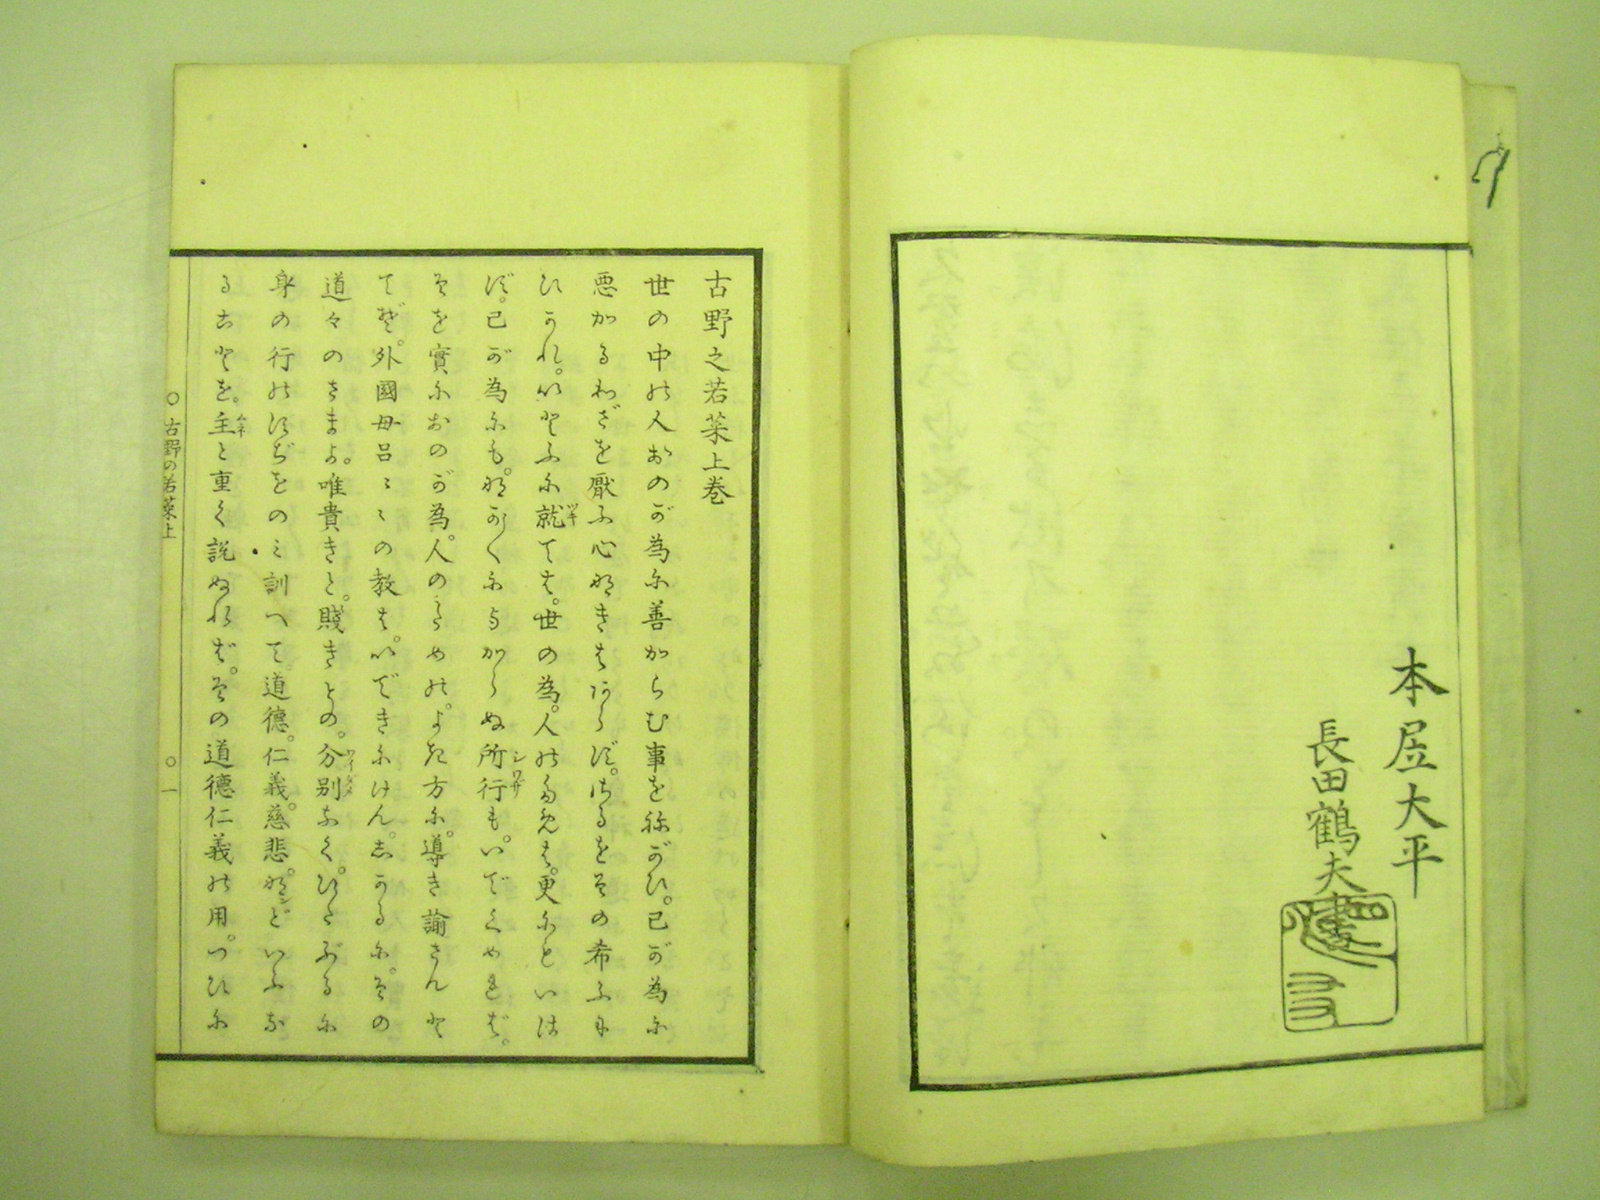 本居大平
長田鶴夫
古野之若菜上巻
世の中の人おのが為に善からむ事を祢がひ。已が為に
悪かるわざを厭ふ心なきはあらず。さるをその希ふに
ひかれ。いとふに就ては。世の為。人のためは。更にといは
ず。已が為にも。なか〳〵によからぬ所行も。いでくめれば。
そを實におのが為。人のためのよき方に。導き諭さんと
てぞ。外國母呂〻〻の教は。いできにけん。しかるに。その
道々のさまよ。唯貴きと。賤きとの。分別なく。ひたぶるに
身の行のすぢをのミ訓へて。道德。仁義。慈悲。などいふな
ることを。主と重く説ぬれば。その道德仁義の用。つひに
古野の若菜上
一